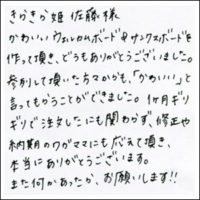 きらきら姫 佐藤様
かわいいウェルカムボード&サンクスボードを
作って頂き、どうもありがとうございました。
参列して頂いた方々からも、「かわいい」と
言ってもらうことができました。1ヶ月ギリ
ギリで注文したにも関わらず、修正や
納期のワガママにも応えて頂き、
本当にありがとうございます。
また何かあったら、お願いします!!